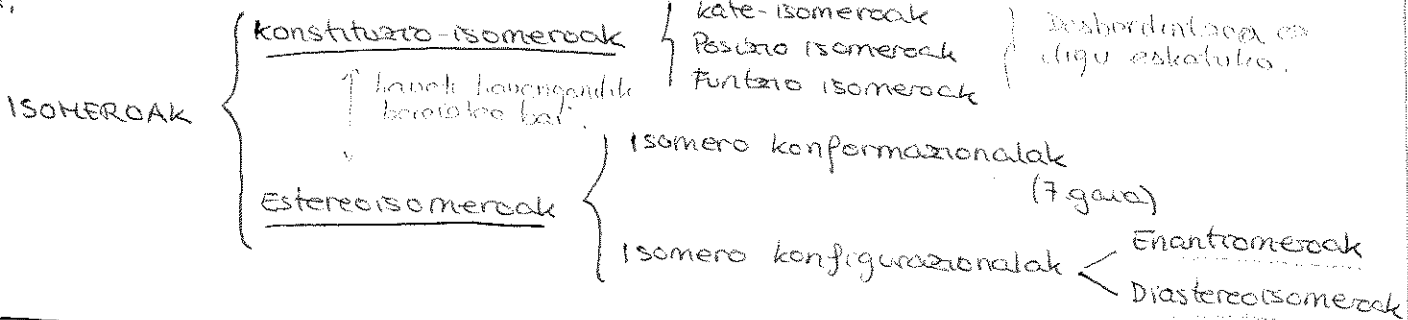 ISOMEROAK
Konstituzio-isomeroak
kate-isomeroak
Posizio isomeroak
Funtzio isomeroak
Desberdintzea ez
digu eskatuko.
hauek hauengandik
bereiztea bai.
Estereoisomeroak
Isomero konformazionalak
(7.gaia)
Isomero konfigurazionalak
Enantiomeroak
Diastereoisomeroak